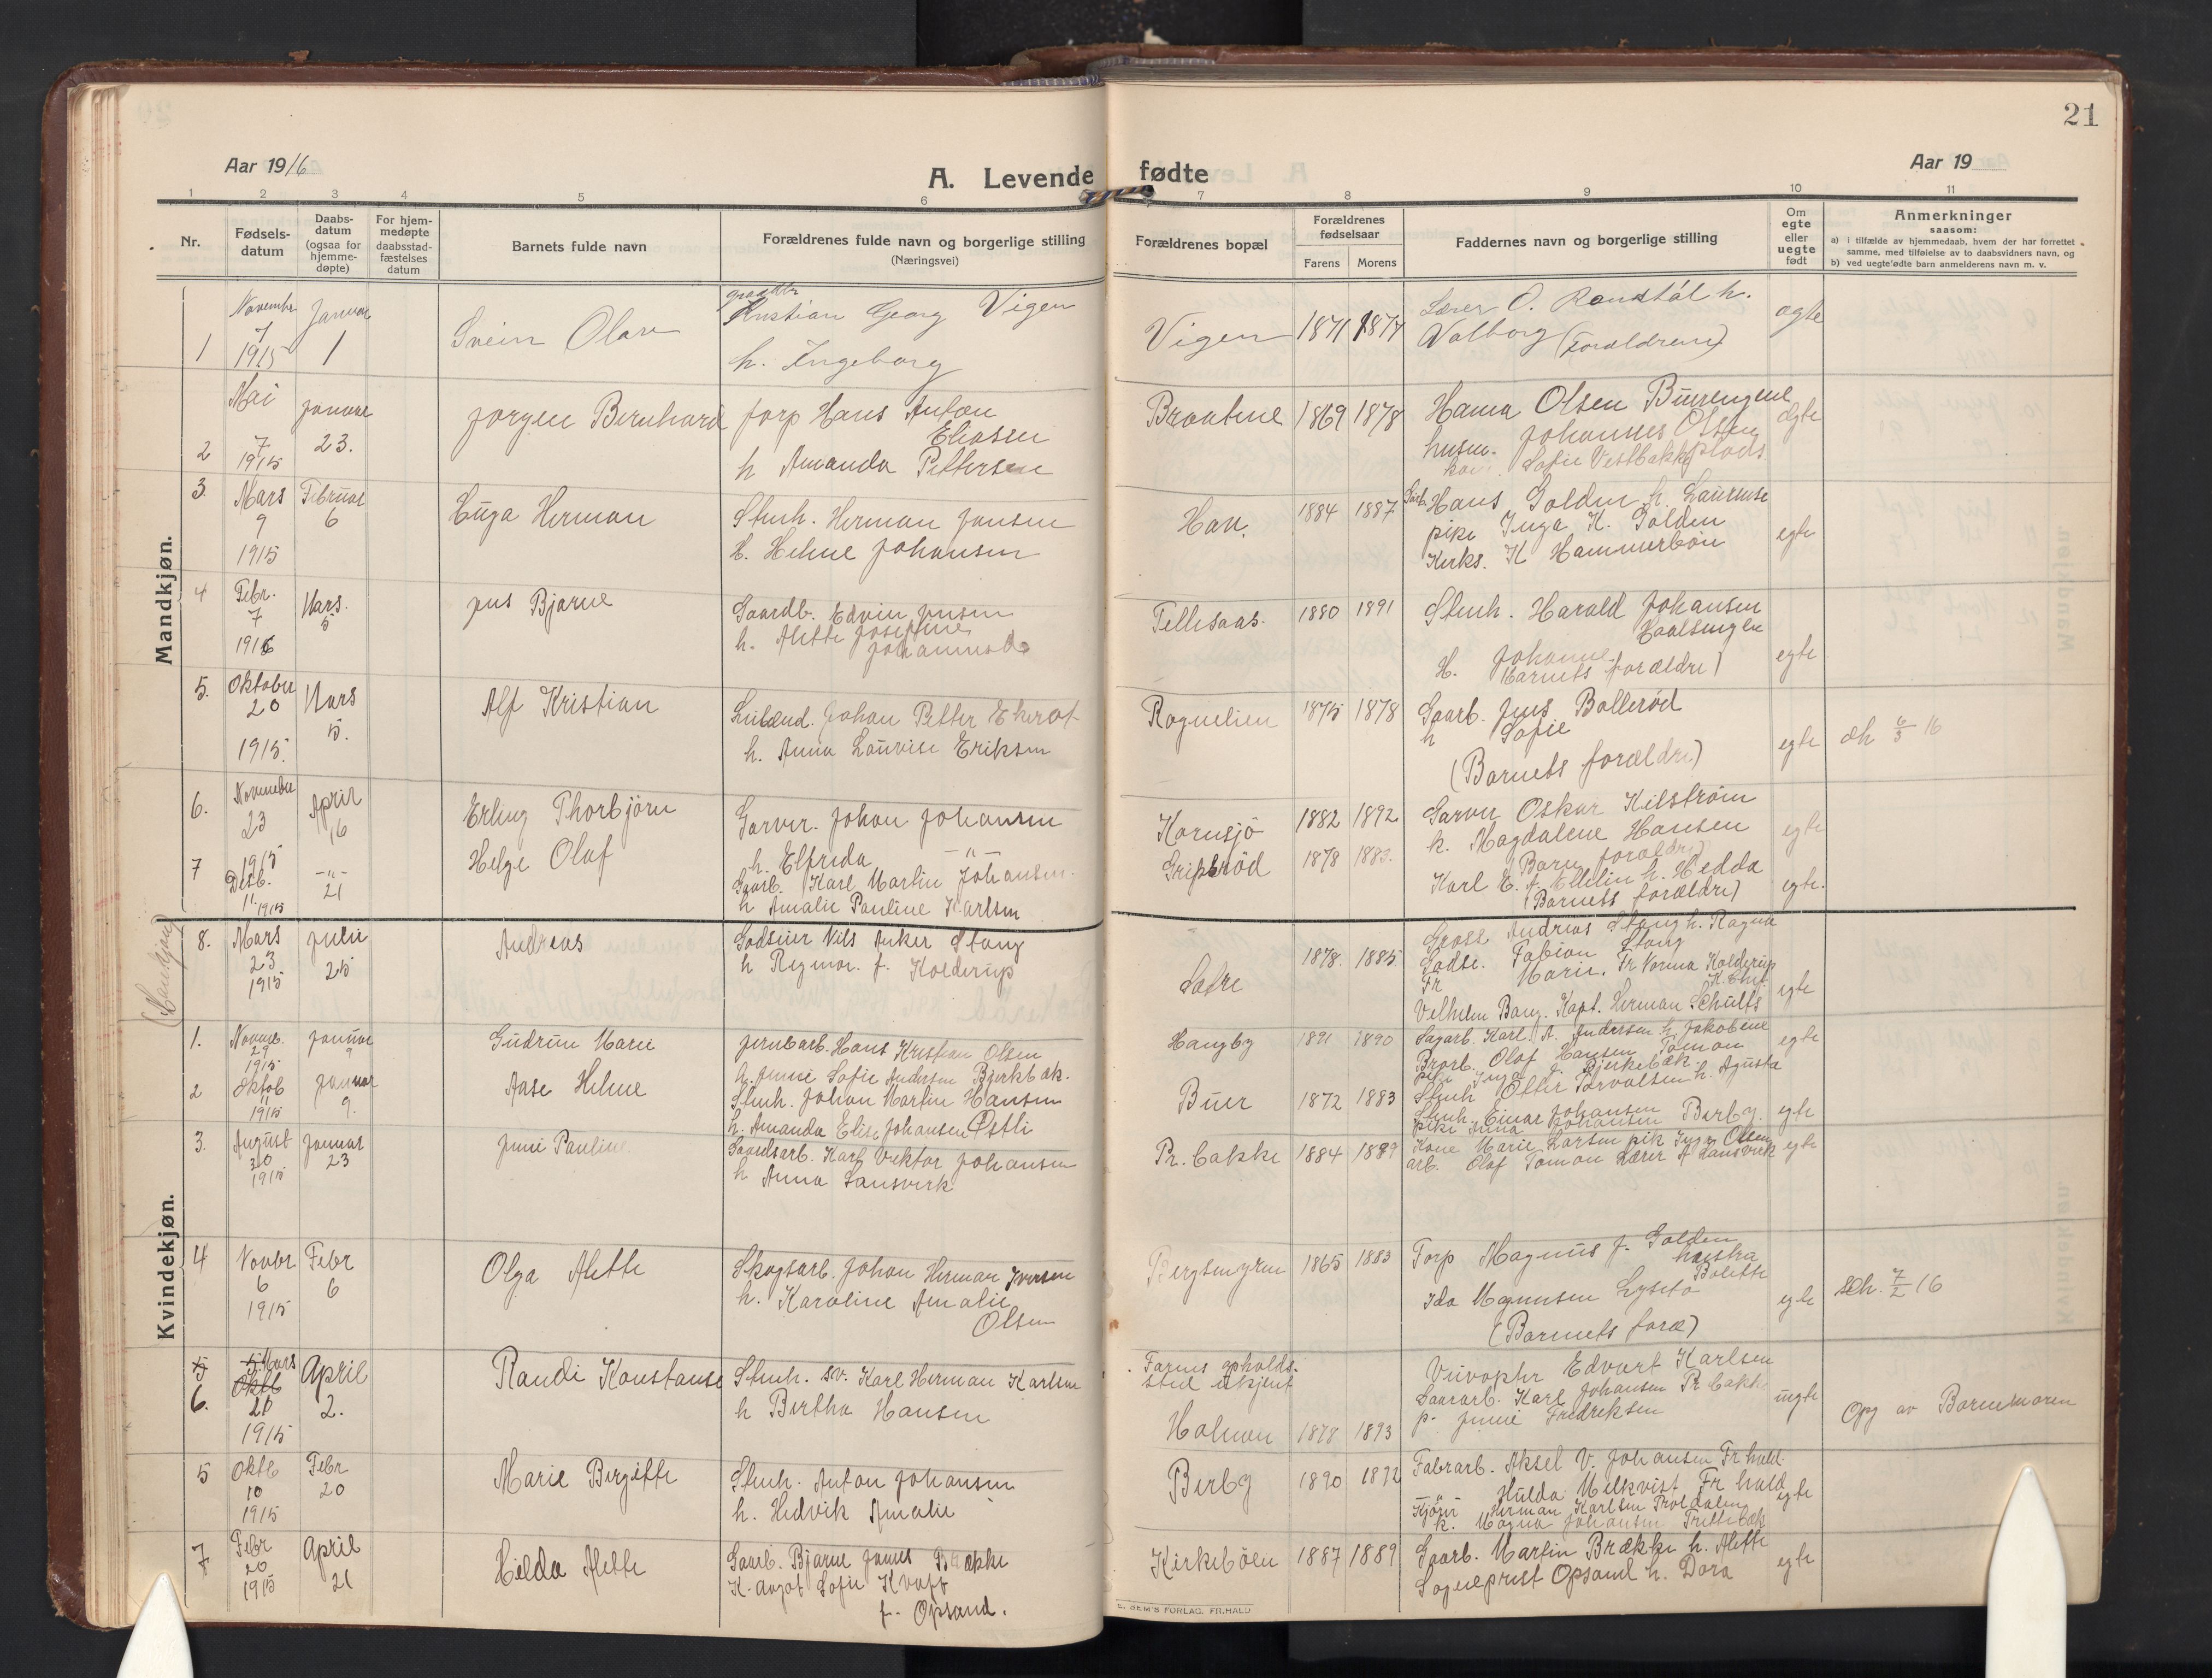 21
Aar 1916
A. Levende fødte
Aar 19
1 2 3 4 5 6 7 8 9 10 11
Nr.
Fødselsdatum
Daabsdatum (ogsaa for hjemmedøpte)
For hjemmedøpte daabsstadfæstelses datum
Barnets fulde navn
Forældrenes fulde navn og borgerlige stilling
(Næringsvei)
Forældrenes bopæl
Forældrenes fødselsaar
Farens Morens
Faddernes navn og borgerlige stilling
Om egte eller uegte født
Anmerkninger
saasom:
a) i tilfælde av hjemmedaab, hvem der har forrettet samme, med tilføielse av to daabsvidners navn, og
b) ved uegte fødte barn anmelderens navn m. v.
Mandkjøn.
1 November 7 1915 Januar 1
Svein Olav
Kristian Georg Vigen
h. Ingeborg
Vigen 1871 1877
Lærer O.
Valborg (Forældrene)
egte
2 Mai 7 1915 Januar 23.
Jørgen Bernhard
Forp Hans Anton
Eliassen
h Amanda Pettersen
Braatene 1869 1878
Hanna Olsen Buerengene
husm. Johannes Olsen
kone. Sofie Vestbakke plads.
egte
3. Mars 9 1915 Februar 6
Herman
Stenh. Herman Jansen
h. Helene Johansen
Hau. 1884 1887
Hans Golden h. Laurense
pike Inga K. Golden
Kirks. K Hammerbøn
egte
4 Febr. 7 1916 Mars. 5
Jens Bjarne
Gaardb. Edvin Jensen
h. Alette Josefine
Tellesaas. 1880 1891
Stenh. Harald Johansen
H. Johanne
(Barnets forældre)
egte
5. Oktober 20 1915. Mars 5.
Alf Kristian
Johan Petter
h. Anna Lauvise Eriksen
Rognelien 1875 1878
Gaarb. Jens Bollerød
h Sofie
(Barnets forældre)
egte
6. November 23 1915 April 16
Erling Thorbjørn
Garver. Johan Johansen
h. Elfrida -"-
Kornsjø 1882 1892
Garver Oskar Kilstrøm
k. Magdalene Hansen
(Barn forældre)
egte
7 Desb. 11. 1915 -"- 21
Helge Olaf
Gaarb. Karl Martin Johansen.
h Amalie Pauline Karlsen
Gripsrød 1878 1883.
Karl E. h. Hedda
(Barnets forældre)
egte.
(Mankjøn)
8. Mars 23 1915 Julii 25
Andreas
Godseier Nils Anker Stang
h Regmor. f. Kolderup
1878. 1885
Gross Andreas Stang h. Ragna
Godse. Fabian Stang
Fr Marie. Fr Norma Kolderup
Velhelm Bang. Kapt. Herman Schults
egte
Kvindekjøn.
1. Novmb. 29 1915 Januar 9
Gudrun Marie
Jernbarb. Hans Kristian Olsen
h. Jenni Sofie Andersen Bjerkbæk.
Hangby 1891 1890
Sagarb. Karl A. Andersen h. Jakobine
Olaf Hansen Toman
pike Inga J. Bjerkebæk
egte
2 Oktob 11 1915 Januar 9.
Aase Helene
Stenh. Johan Martin Hansen
h. Amanda Elise Johansen Østli
Buer 1872 1883
Stenh Otter Torvalsen h. Agusta
Stenh. Einar Johansen
pike Anna Johansen Berby.
egte
3. August 30 1915 Januar 23
Jenni Pauline
Karl Vektor Johansen
h Anna Lansverk
Pr. bakke 1884 1889
Kone Marie Larsen pik Inga Olsen
arb. Olaf Toman Lærer A Lansverk
egte
4 Novbr 6 1915 Febr 6
Olga Alette
Skogsarb. Johan Herman Iversen
h. Karoline Amalie
Olsen
Bergsmyren 1865 1883
Torp Magnus J. Golden
hustru
Bolette
Ida Magnusen
(Barnets foræ)
egte
7/2 16
5 6. Mars Oktb 20 1915 April 2.
Randi Konstanse
Stenh. sv. Karl Herman Karlsen
h Bertha Hansen
Farens opholdssted ukjent
Holmen 1878 1893
Edvart Karlsen
Karl Johansen Pr bakke
p. Jenni Fredriksen
uegte
Opg av Barnemoren
5 Oktb 10 1915 Febr 20
Marie Birgitte
Stenh. Anton Johansen
h. Hedvik Amalie
Berby 1890 1892
Fabrarb. Aksel V. Johansen Fr hald.
-"- Hulda Melkvist Fr hald
Herman Karlsen
k. Magna Johansen
egte
7 Febr 20 1915 April 21
Hilda Alette
Gaarb. Bjarne James Brække
Sofie
f. Opsand.
Kirkebøen 1887 1889
Gaarb. Martin Brække h. Alette
Sogneprest Opsand h. Dora
egte
E. SEM'S FORLAG, FR.HALD